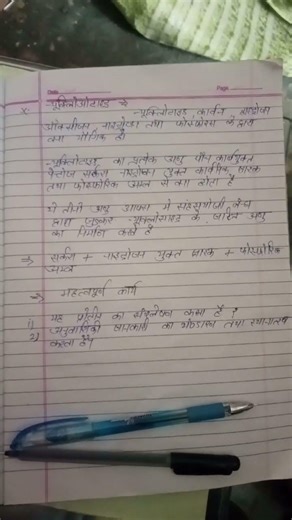 Date
Page
न्यूक्लिओटाइड ⇒
x - न्यूक्लिओटाइड कार्बन हाइड्रोजन
ऑक्सीजन नाइट्रोजन तथा फॉस्फोरस के द्वारा
बना यौगिक है
- न्यूक्लिओटाइड का प्रत्येक अणु पाँच कार्बनयुक्त
पेन्टोज शर्करा नाइट्रोजन युक्त कार्बनिक क्षारक
तथा फास्फोरिक अम्ल से बना होता है
ये तीनों अणु आपस में सहसंयोजी बंध
द्वारा जुड़कर न्यूक्लिओटाइड के जटिल अणु
का निर्माण करते है
⇒ शर्करा + नाइट्रोजन युक्त क्षारक + फास्फोरिक
अम्ल
⇒ महत्वपूर्ण कार्य
1) यह प्रोटीन का संश्लेषण करता है ?
2) अनुवांशिकी का भण्डारण तथा स्थानान्तरण
करता है?